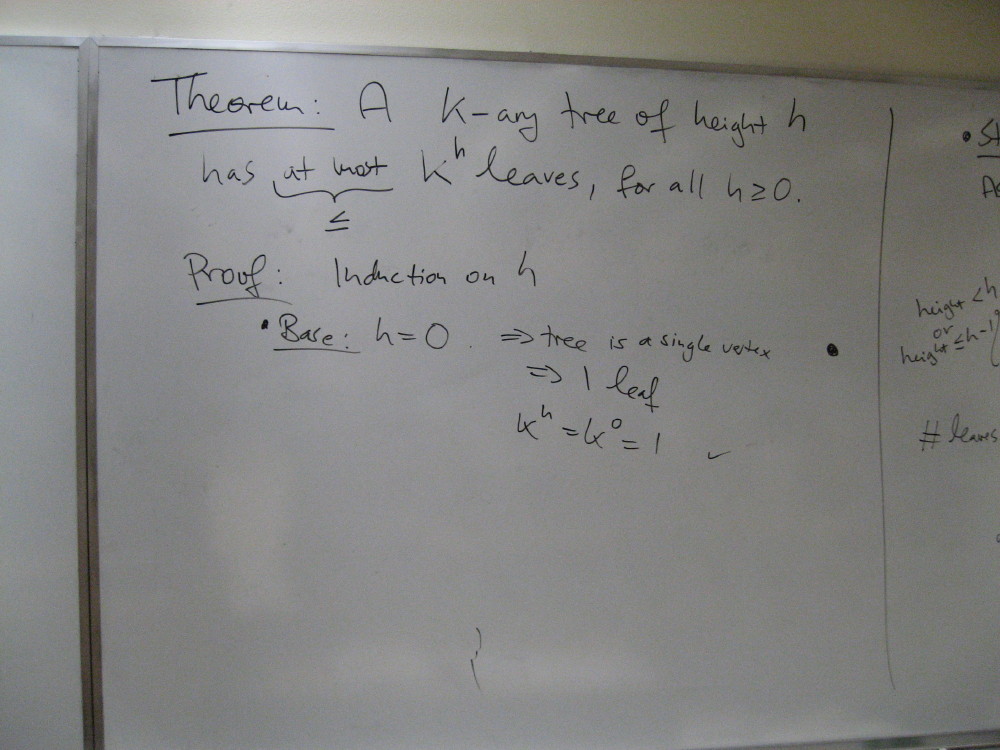 Theorem: A k-ary tree of height h
has at most k^h leaves, for all h ≥ 0.
≤
Proof: Induction on h
• Base: h = 0 ⇒ tree is a single vertex
⇒ 1 leaf
k^h = k^0 = 1 ✓
• St
height < h
or
height ≤ h-1
# leaves